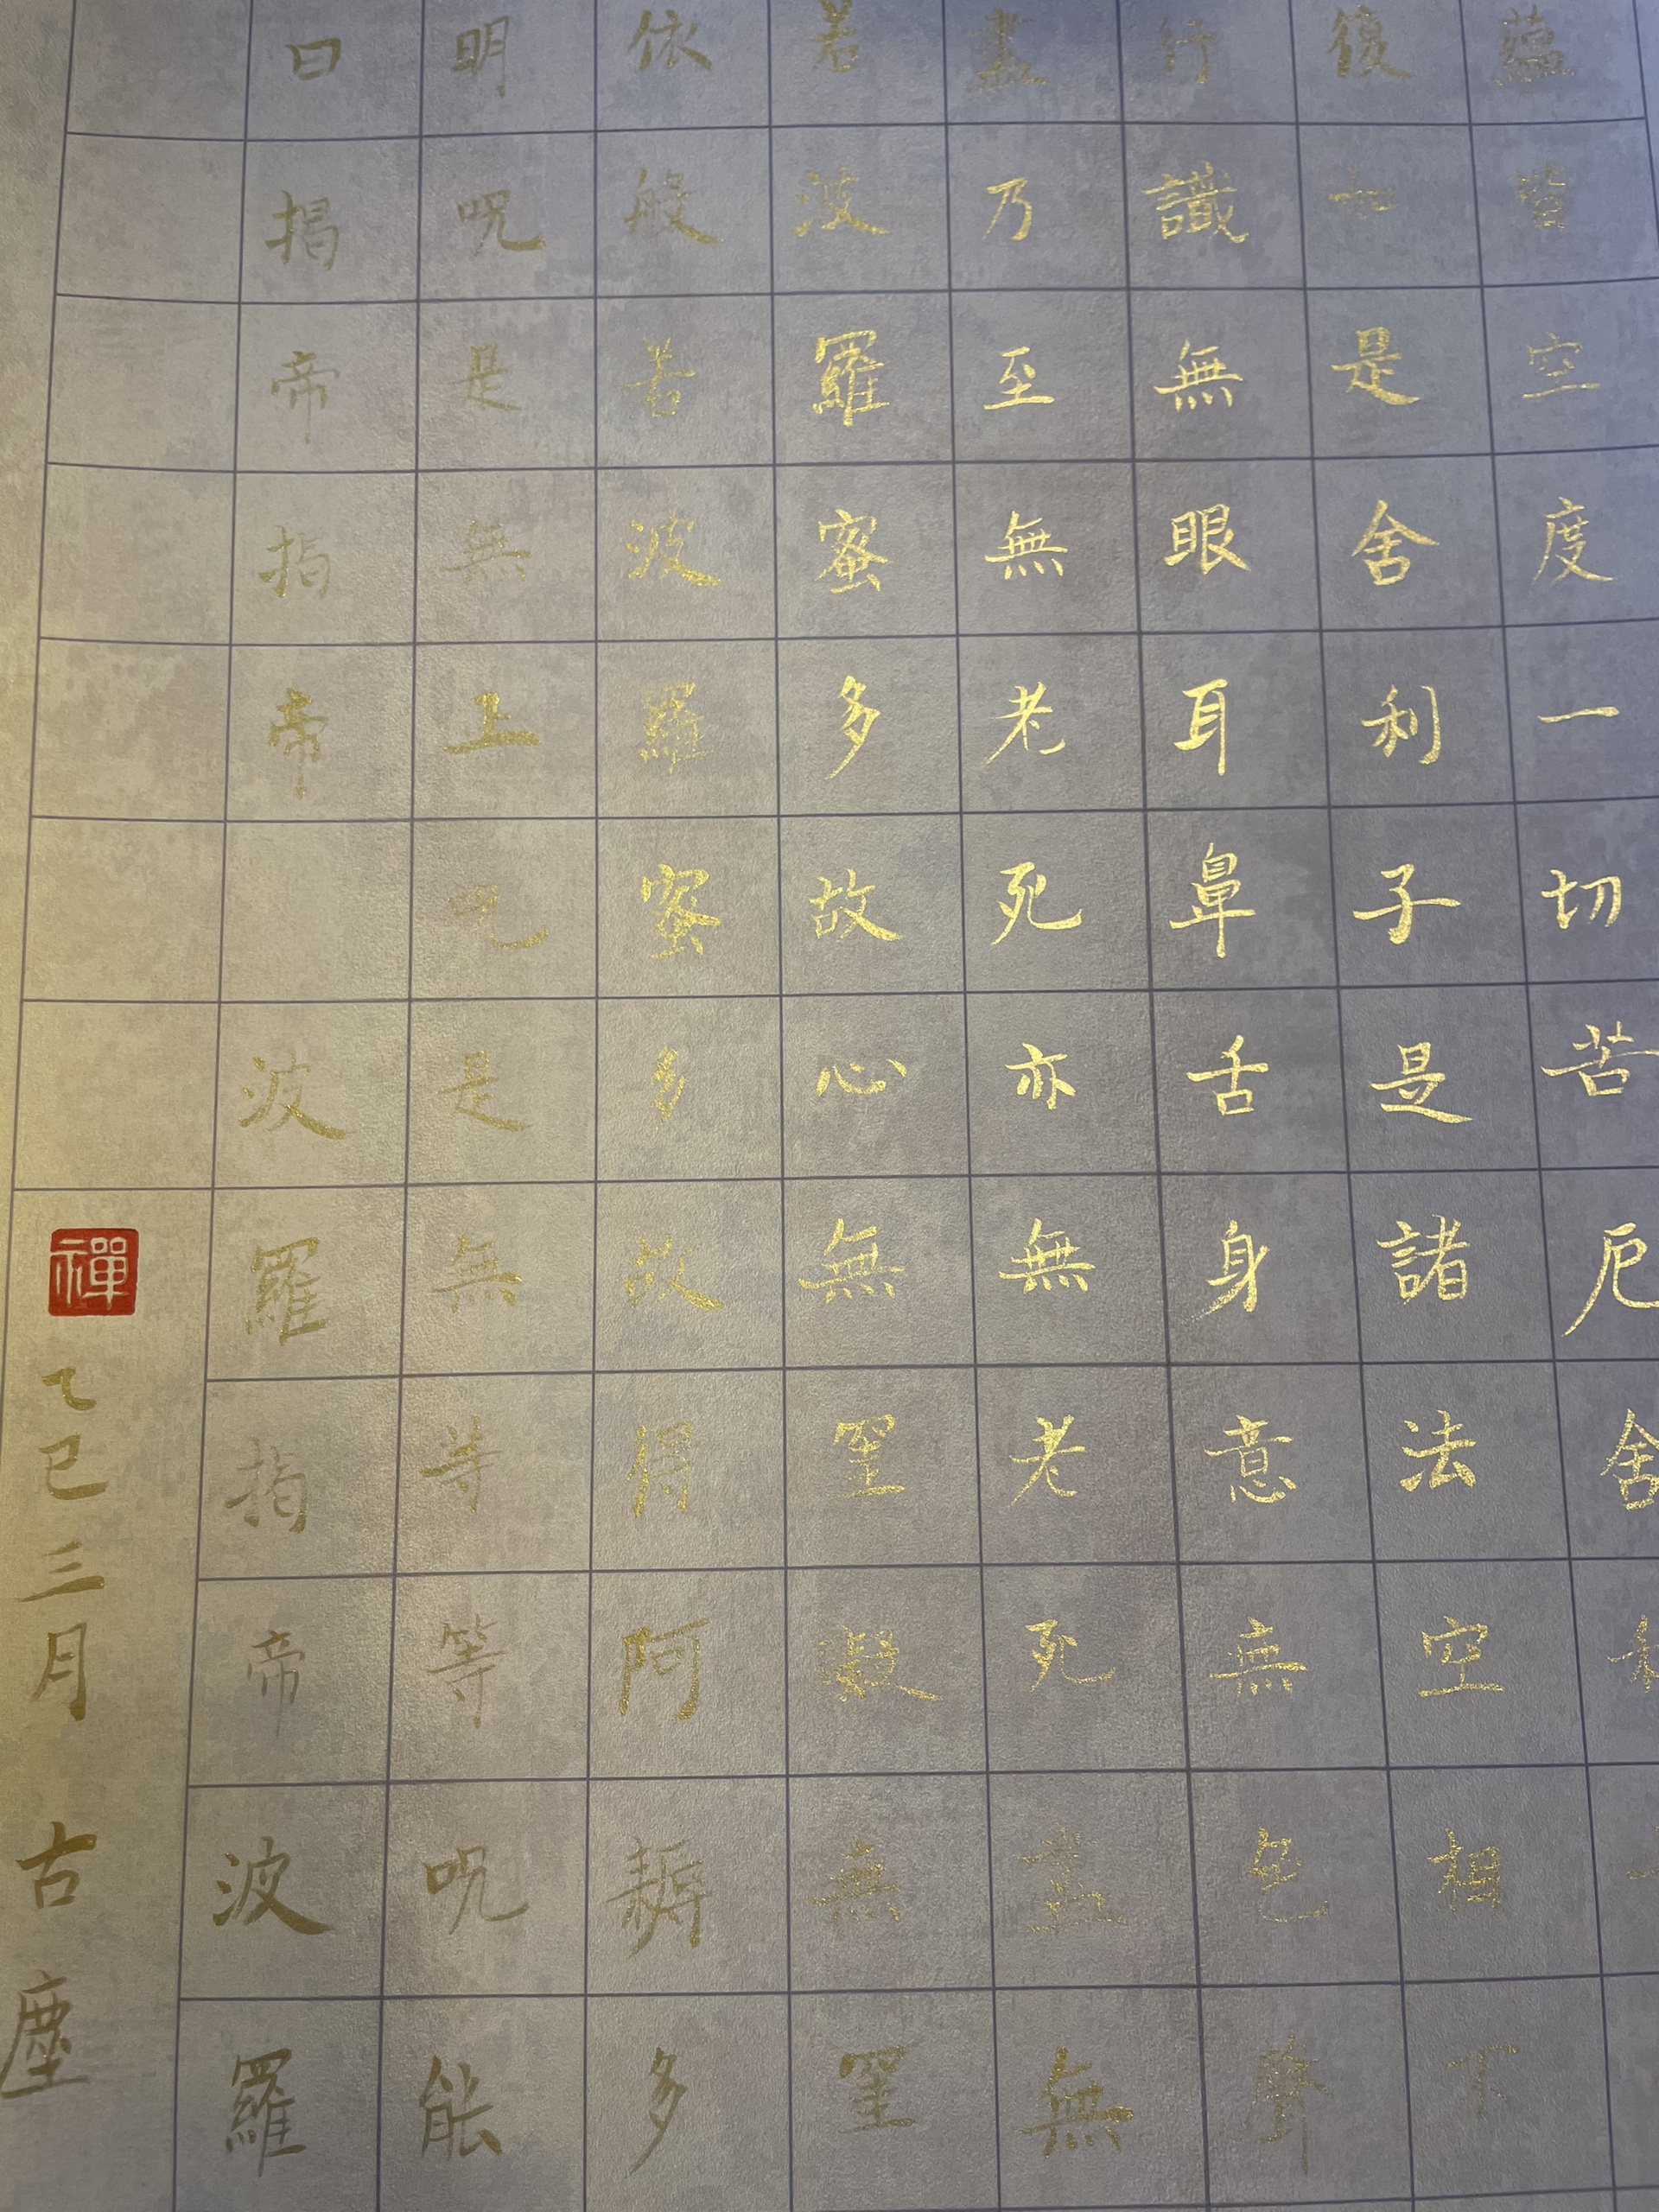 蘊皆空度一切苦厄舍
後如是舍利子是諸法空相不
行識無眼耳鼻舌身意無色聲
盡乃至無老死亦無老死盡無
若波羅蜜多故心無罣礙無罣
依般若波羅蜜多故得阿耨多
明咒是無上咒是無等等咒能
曰揭帝揭帝 波羅揭帝波羅
禪
乙巳三月 古塵